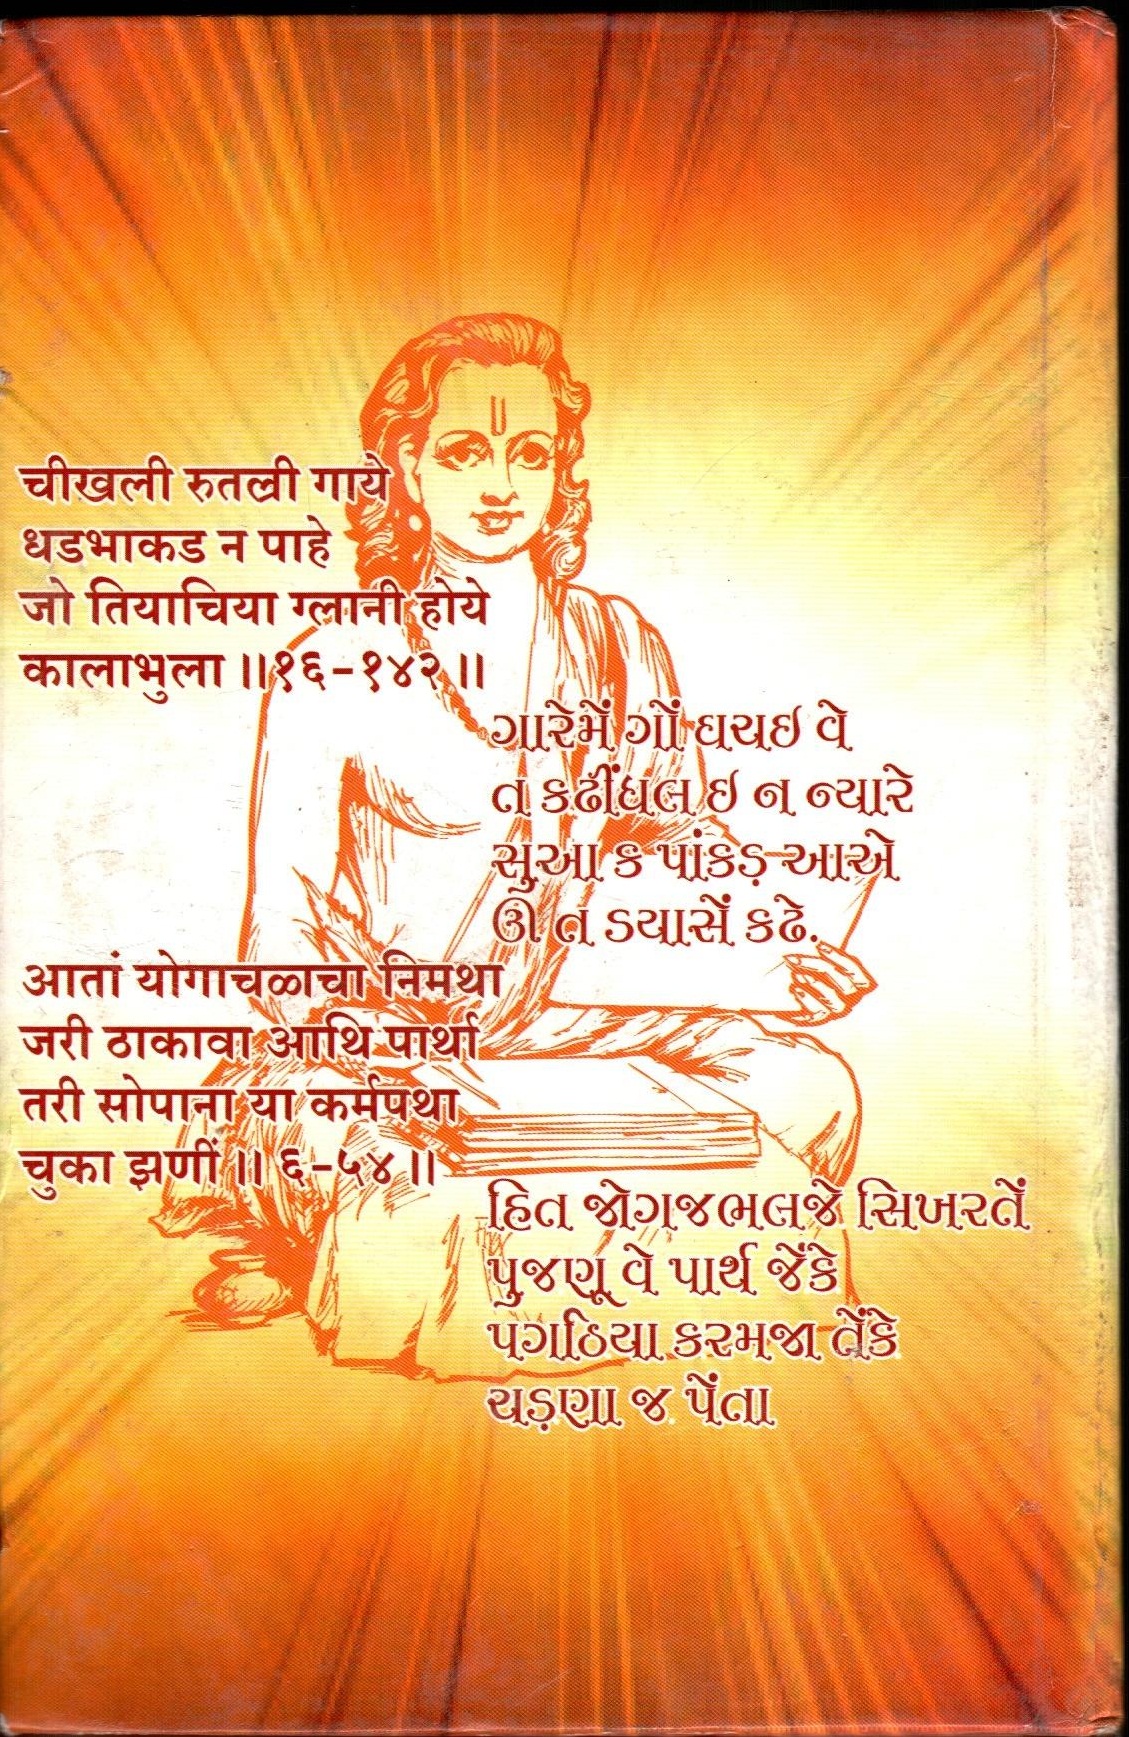 चीखली रुतली गाये
धडभाकड न पाहे
जो तियाचिया ग्लानी होये
कालाभुला ॥१६-१४२॥
ગારેમેં ગોં ઘચઇ વે
ત કઢીંધલ ઇ ન ન્યારે
સુઆ ક પાંકડ઼ આએ
ઊ ત ડયાસેં કઢે.
आतां योगाचळाचा निमथा
जरी ठाकावा आथि पार्था
तरी सोपाना या कर्मपथा
चुका झणीं ॥ ६-५४॥
હિત જોગજભલજે સિખરતેં
પુજણૂ વે પાર્થ જેંકે
પગઠિયા કરમજા તેંકે
ચડ઼ણા જ પેંતા